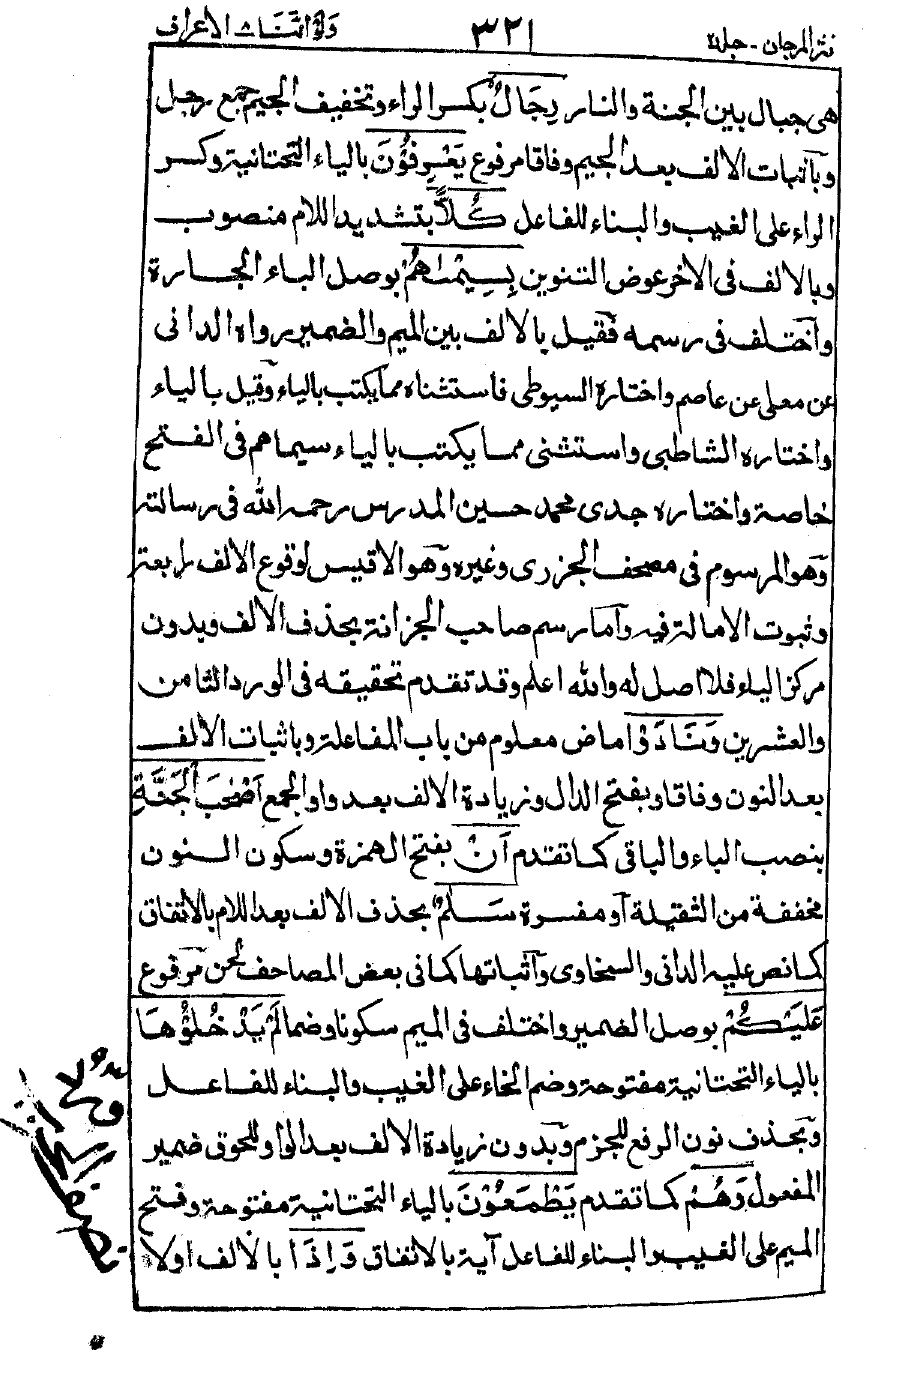 نثر المرجان - جلد٢ ٣٢١ ولو اننا الاعراف
هى جبال بين الجنة والنار رِجَالٌ بكسر الراء وتخفيف الجيم جمع رجل
وبآثبات الالف بعد الجيم وفاقا مرفوع يَعْرِفُوْنَ بالياء التحتانية وكسر
الراء على الغيب والبناء للفاعل كُلًّا بتشديد اللام منصوب
وبالالف فى الاخر عوض التنوين بِسِيْمٰىهُمْ بوصل الباء الجارة
وآختلف فى رسمه فقيل بالالف بين الميم والضمير رواه الدانى
عن معلى عن عاصم واختاره السيوطى فاستثناه مما يكتب بالياء وقيل بالياء
واختاره الشاطبى واستثنى مما يكتب بالياء سيماهم فى الفتح
خاصة واختاره جدى محمد حسين المدرس رحمه الله فى رسالته
وهو المرسوم فى مصحف الجزرى وغيره وهو الاقيس لوقوع الالف رابعة
وثبوت الامالة فيه وآما رسم صاحب الخزانة بحذف الالف وبدون
مركز الياء فلا اصل له والله اعلم وقد تقدم تحقيقه فى الورد الثامن
والعشرين وَنَادَوْا ماض معلوم من باب المفاعلة وباثبات الالف
بعد النون وفاقا وبفتح الدال وزيادة الالف بعد واو الجمع اَصْحٰبَ الْجَنَّةِ
بنصب الباء والباقى كما تقدم اَنْ بفتح الهمزة وسكون النون
مخففة من الثقيلة آو مفسرة سَلٰمٌ بحذف الالف بعد اللام بالاتفاق
كما نص عليه الدانى والسخاوى وآثباتها كما فى بعض المصاحف لحن مرفوع
عَلَيْكُمْ بوصل الضمير واختلف فى الميم سكونا وضما لَمْ يَدْخُلُوْهَا
بالياء التحتانية مفتوحة وضم الخاء على الغيب والبناء للفاعل
وبحذف نون الرفع للجزم وبدون زيادة الالف بعد الواو للحوق ضمير
المفعول وَهُمْ كما تقدم يَطْمَعُوْنَ بالياء التحتانية مفتوحة وفتح
الميم على الغيب والبناء للفاعل آية بالاتفاق وَاِذَا بالالف اولا
نصف الحزب